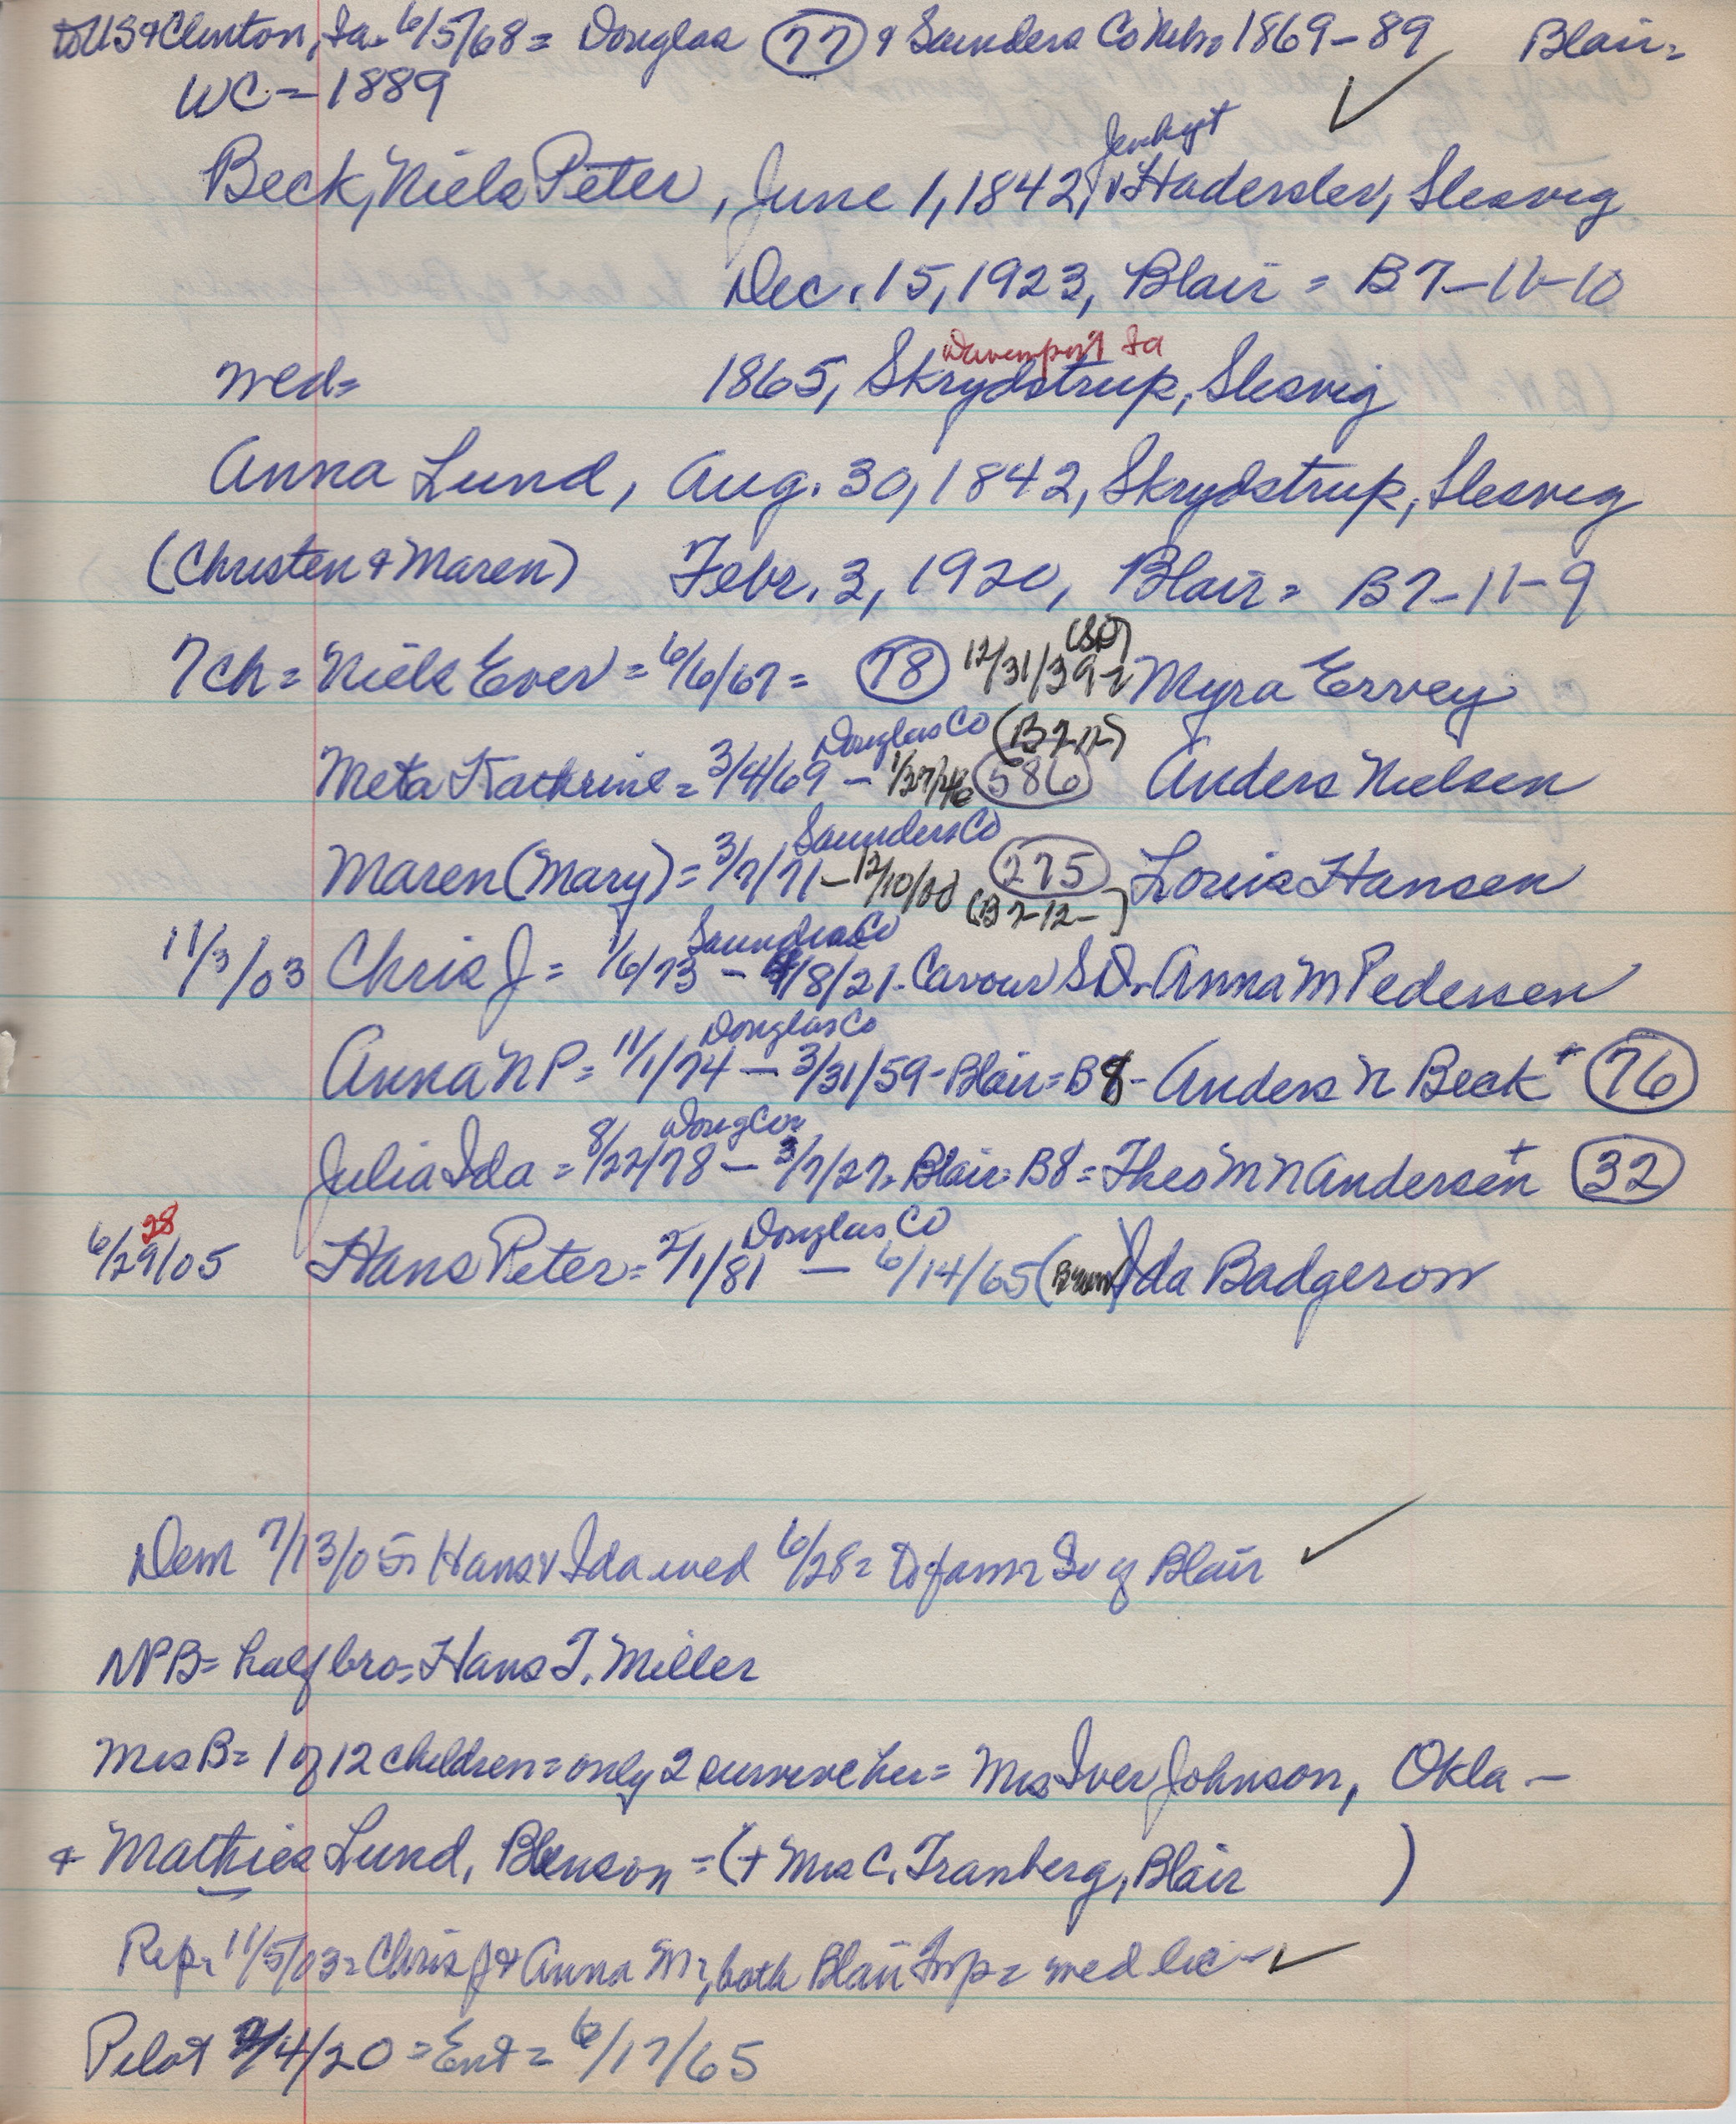 to US & Clinton, Ia. 6/5/68 = Douglas (77) & Saunders Co Nebr 1869-89 Blair=
WC = 1889
Beck, Niels Peter, June 1, 1842, Haderslev, Slesvig
Dec. 15, 1923, Blair = B7-11-10
Davenport Ia
wed= 1865, Skrydstrup, Slesvig
Anna Lund, Aug. 30, 1842, Skrydstrup, Slesvig
(Christen & Maren) Febr. 3, 1920, Blair = B7-11-9
(SD)
7 ch = Niels Ever = 6/6/67 = (78) 12/31/39 Myra Ervey
Douglas Co (B7-12)
Meta Kathrine = 3/4/69 - 1/27/46 (586) Anders Nielsen
Saunders Co
Maren (Mary) = 3/7/71 - 12/10/00 (275) Louis Hansen
(B7-12-)
Saunders Co
11/3/03 Chris J = 1/6/73 - 4/8/21 - Cavour SD - Anna M Pedersen
Douglas Co
Anna N P = 11/1/74 - 3/31/59 - Blair = B8 - Anders N Beck + (76)
Doug Co
Julia Ida = 8/22/78 - 3/7/27 - Blair = B8 = Theo M N Andersen + (32)
28 Douglas Co
6/29/05 Hans Peter = 2/1/81 - 6/14/65 Ida Badgerow
Dem 7/13/05 = Hans & Ida wed 6/28 = To farm So of Blair
NPB = half bro = Hans T. Miller
Mrs B = 1 of 12 children = only 2 survive her = Mrs Iver Johnson, Okla -
& Mathies Lund, Benson = (+ Mrs C. Tranberg, Blair )
Rep. 11/5/03 = Chris J & Anna M, both Blair Twp = wed lic -
Pilot 2/4/20 = Ent = 6/17/65